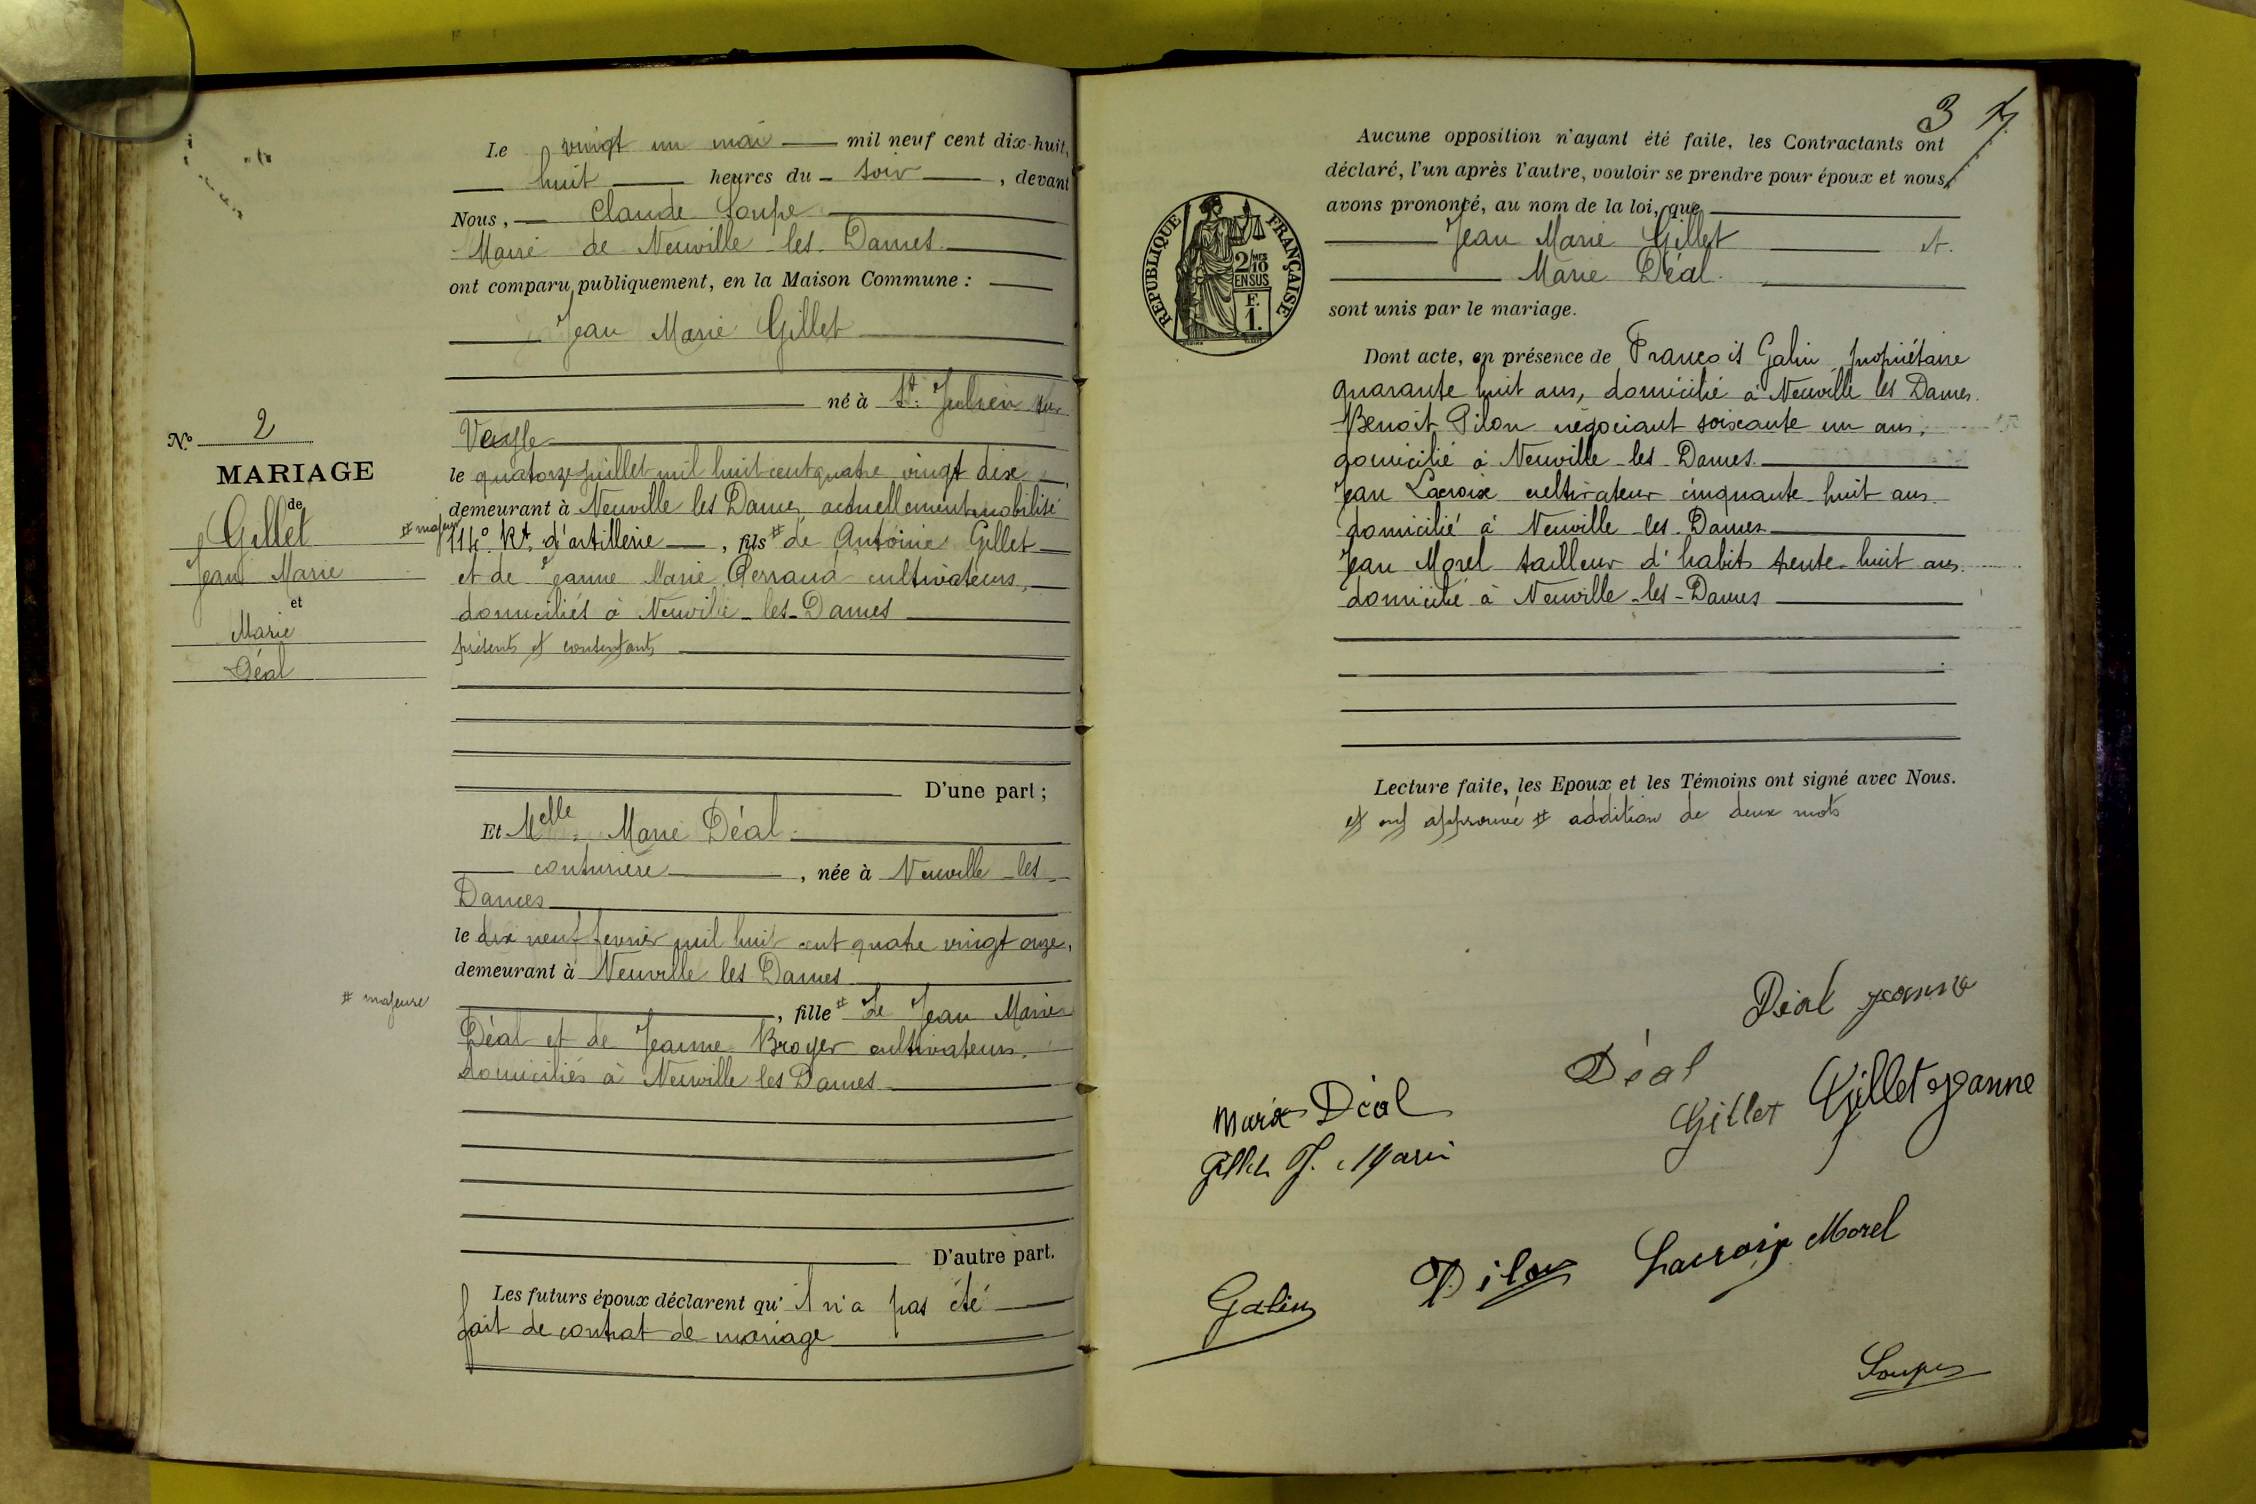 Le vingt un mai mil neuf cent dix-huit,
huit heures du soir, devant
Nous, Claude Soupe
Maire de Neuville les Dames
ont comparu publiquement, en la Maison Commune :
Jean Marie Gillet
né à St. Julien sur
Veyle
le quatorze juillet mil huit cent quatre vingt dix,
demeurant à Neuville les Dames actuellement mobilisé
114e Rt. d'artillerie, fils # de Antoine Gillet
et de Jeanne Marie Perraud cultivateurs,
domiciliés à Neuville-les-Dames
présents et consentants
D'une part ;
Et Melle. Marie Déal
couturière, née à Neuville-les
Dames
le dix neuf fevrier mil huit cent quatre vingt onze,
demeurant à Neuville les Dames
, fille # de Jean Marie
Déal et de Jeanne Broyer cultivateurs.
domiciliés à Neuville les Dames
D'autre part.
Les futurs époux déclarent qu'il n'a pas été
fait de contrat de mariage
No 2
MARIAGE
de
Gillet
Jean Marie
et
Marie
Déal
# majeur
# majeure
3
Aucune opposition n'ayant été faite, les Contractants ont
déclaré, l'un après l'autre, vouloir se prendre pour époux et nous
avons prononcé, au nom de la loi, que
Jean Marie Gillet et
Marie Déal.
sont unis par le mariage.
REPUBLIQUE FRANÇAISE
2/10 MES
EN SUS
F.
1.
Dont acte, en présence de François Galin propriétaire
quarante huit ans, domicilié à Neuville les Dames.
Benoit Pilon négociant soixante un ans,
domicilié à Neuville-les-Dames.
Jean Lacroix cultivateur cinquante-huit ans
domicilié à Neuville-les-Dames
Jean Morel tailleur d'habits trente-huit ans
domicilié à Neuville-les-Dames
Lecture faite, les Epoux et les Témoins ont signé avec Nous.
approuvé # addition de deux mots
Déal jeanne
Déal
Marie Déal
Gillet Gillet jeanne
Gillet J. Marie
Galin
Pilon Lacroix Morel
Soupe